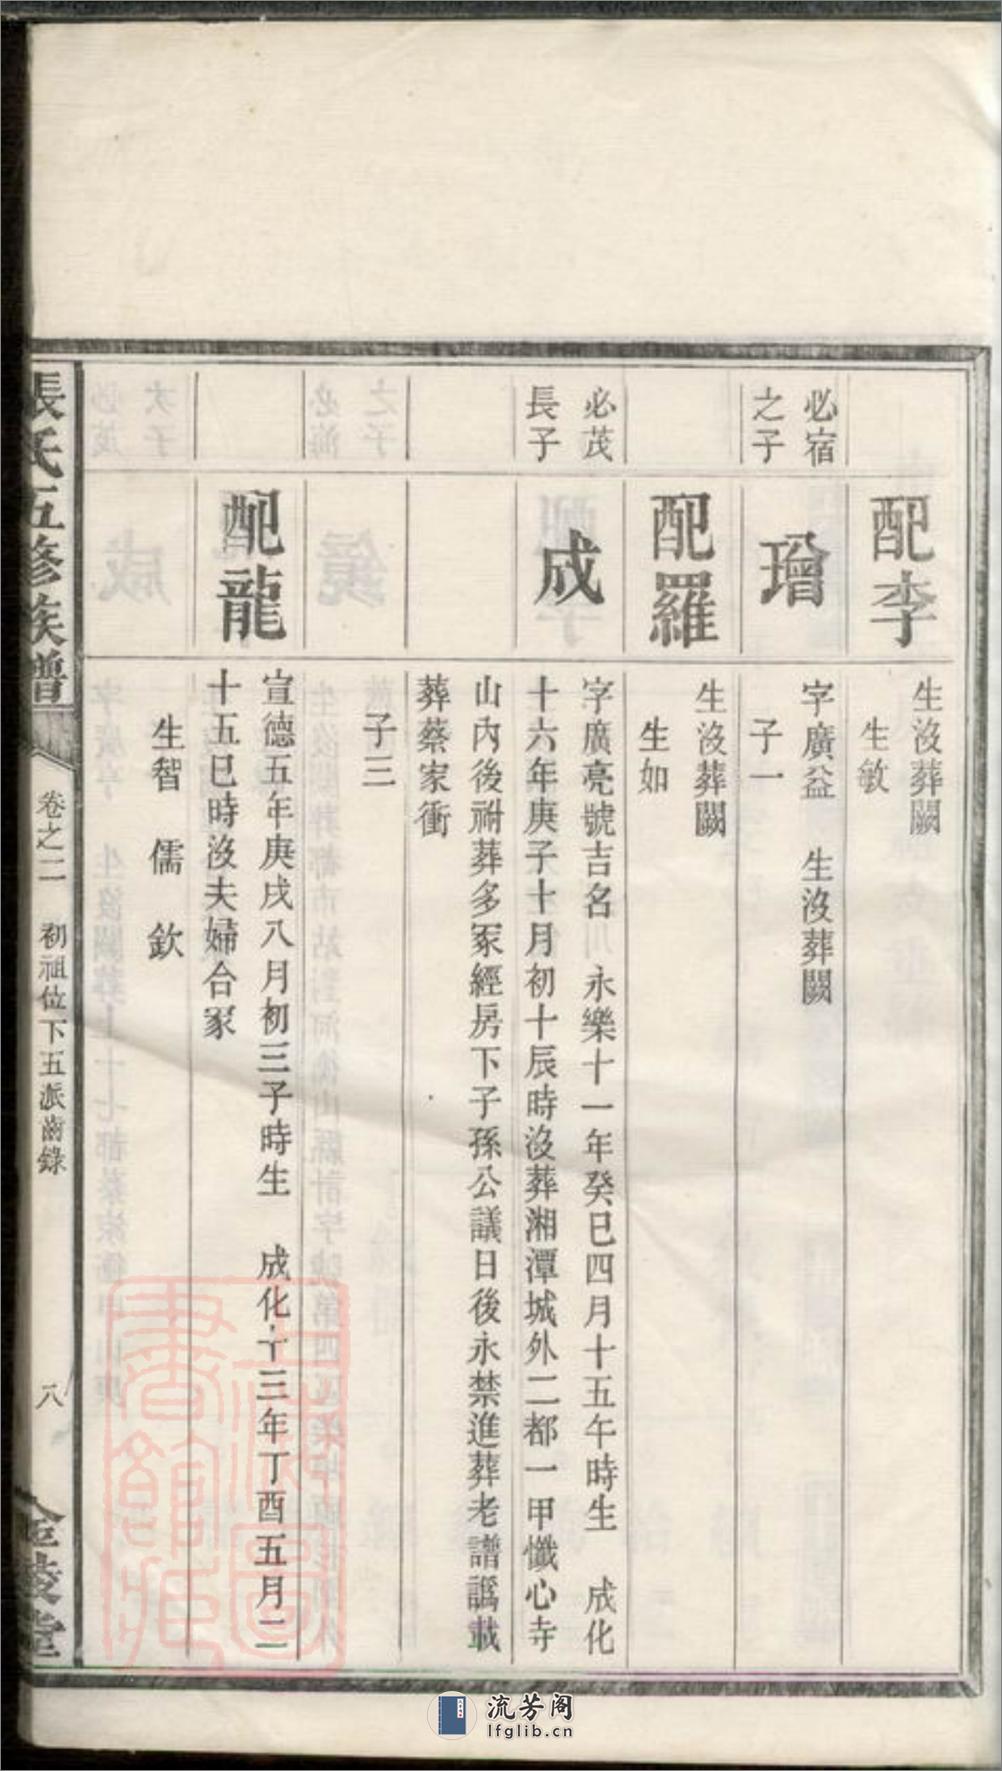 配李
生沒葬闕
生敏
必宿
之子
璔
字廣益　生沒葬闕
子一
配羅
生沒葬闕
生如
必茂
長子
成
字廣亮號吉名　永樂十一年癸巳四月十五午時生　成化
十六年庚子十月初十辰時沒葬湘潭城外二都一甲懺心寺
山內後祔葬多冢經房下子孫公議日後永禁進葬老譜譌載
葬蔡家衝
子三
配龍
宣德五年庚戌八月初三子時生　成化十三年丁酉五月二
十五巳時沒夫婦合冢
生智　儒　欽
張氏五修族譜
卷之二　初祖位下五派齒錄
八
金陵堂
流芳阁
lfglib.cn